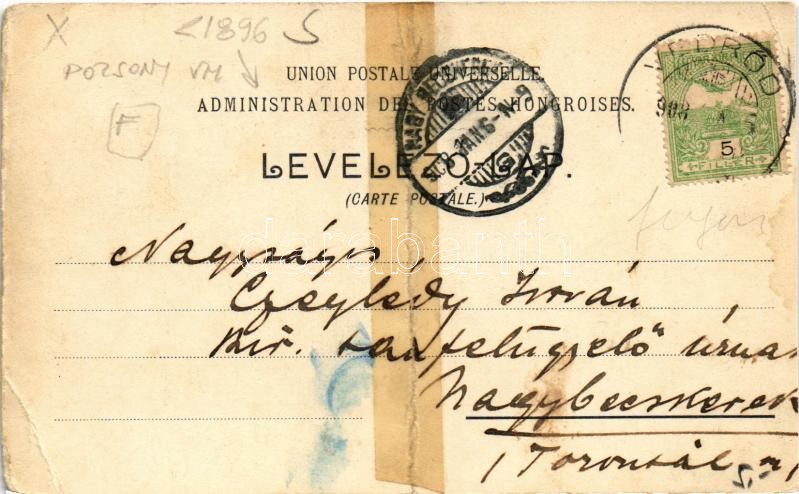 X <1896 S
POZSONY VM
F
UNION POSTALE UNIVERSELLE.
ADMINISTRATION DES POSTES HONGROISES.
LEVELEZŐ-LAP.
(CARTE POSTALE.)
VEDRŐD
908
5
FILLÉR
NAGY
908 JAN 6
darabanth
Nagyságos
Czeglédy István
kir. tanfelügyelő úrnak
Nagybecskerek
(Torontál m)